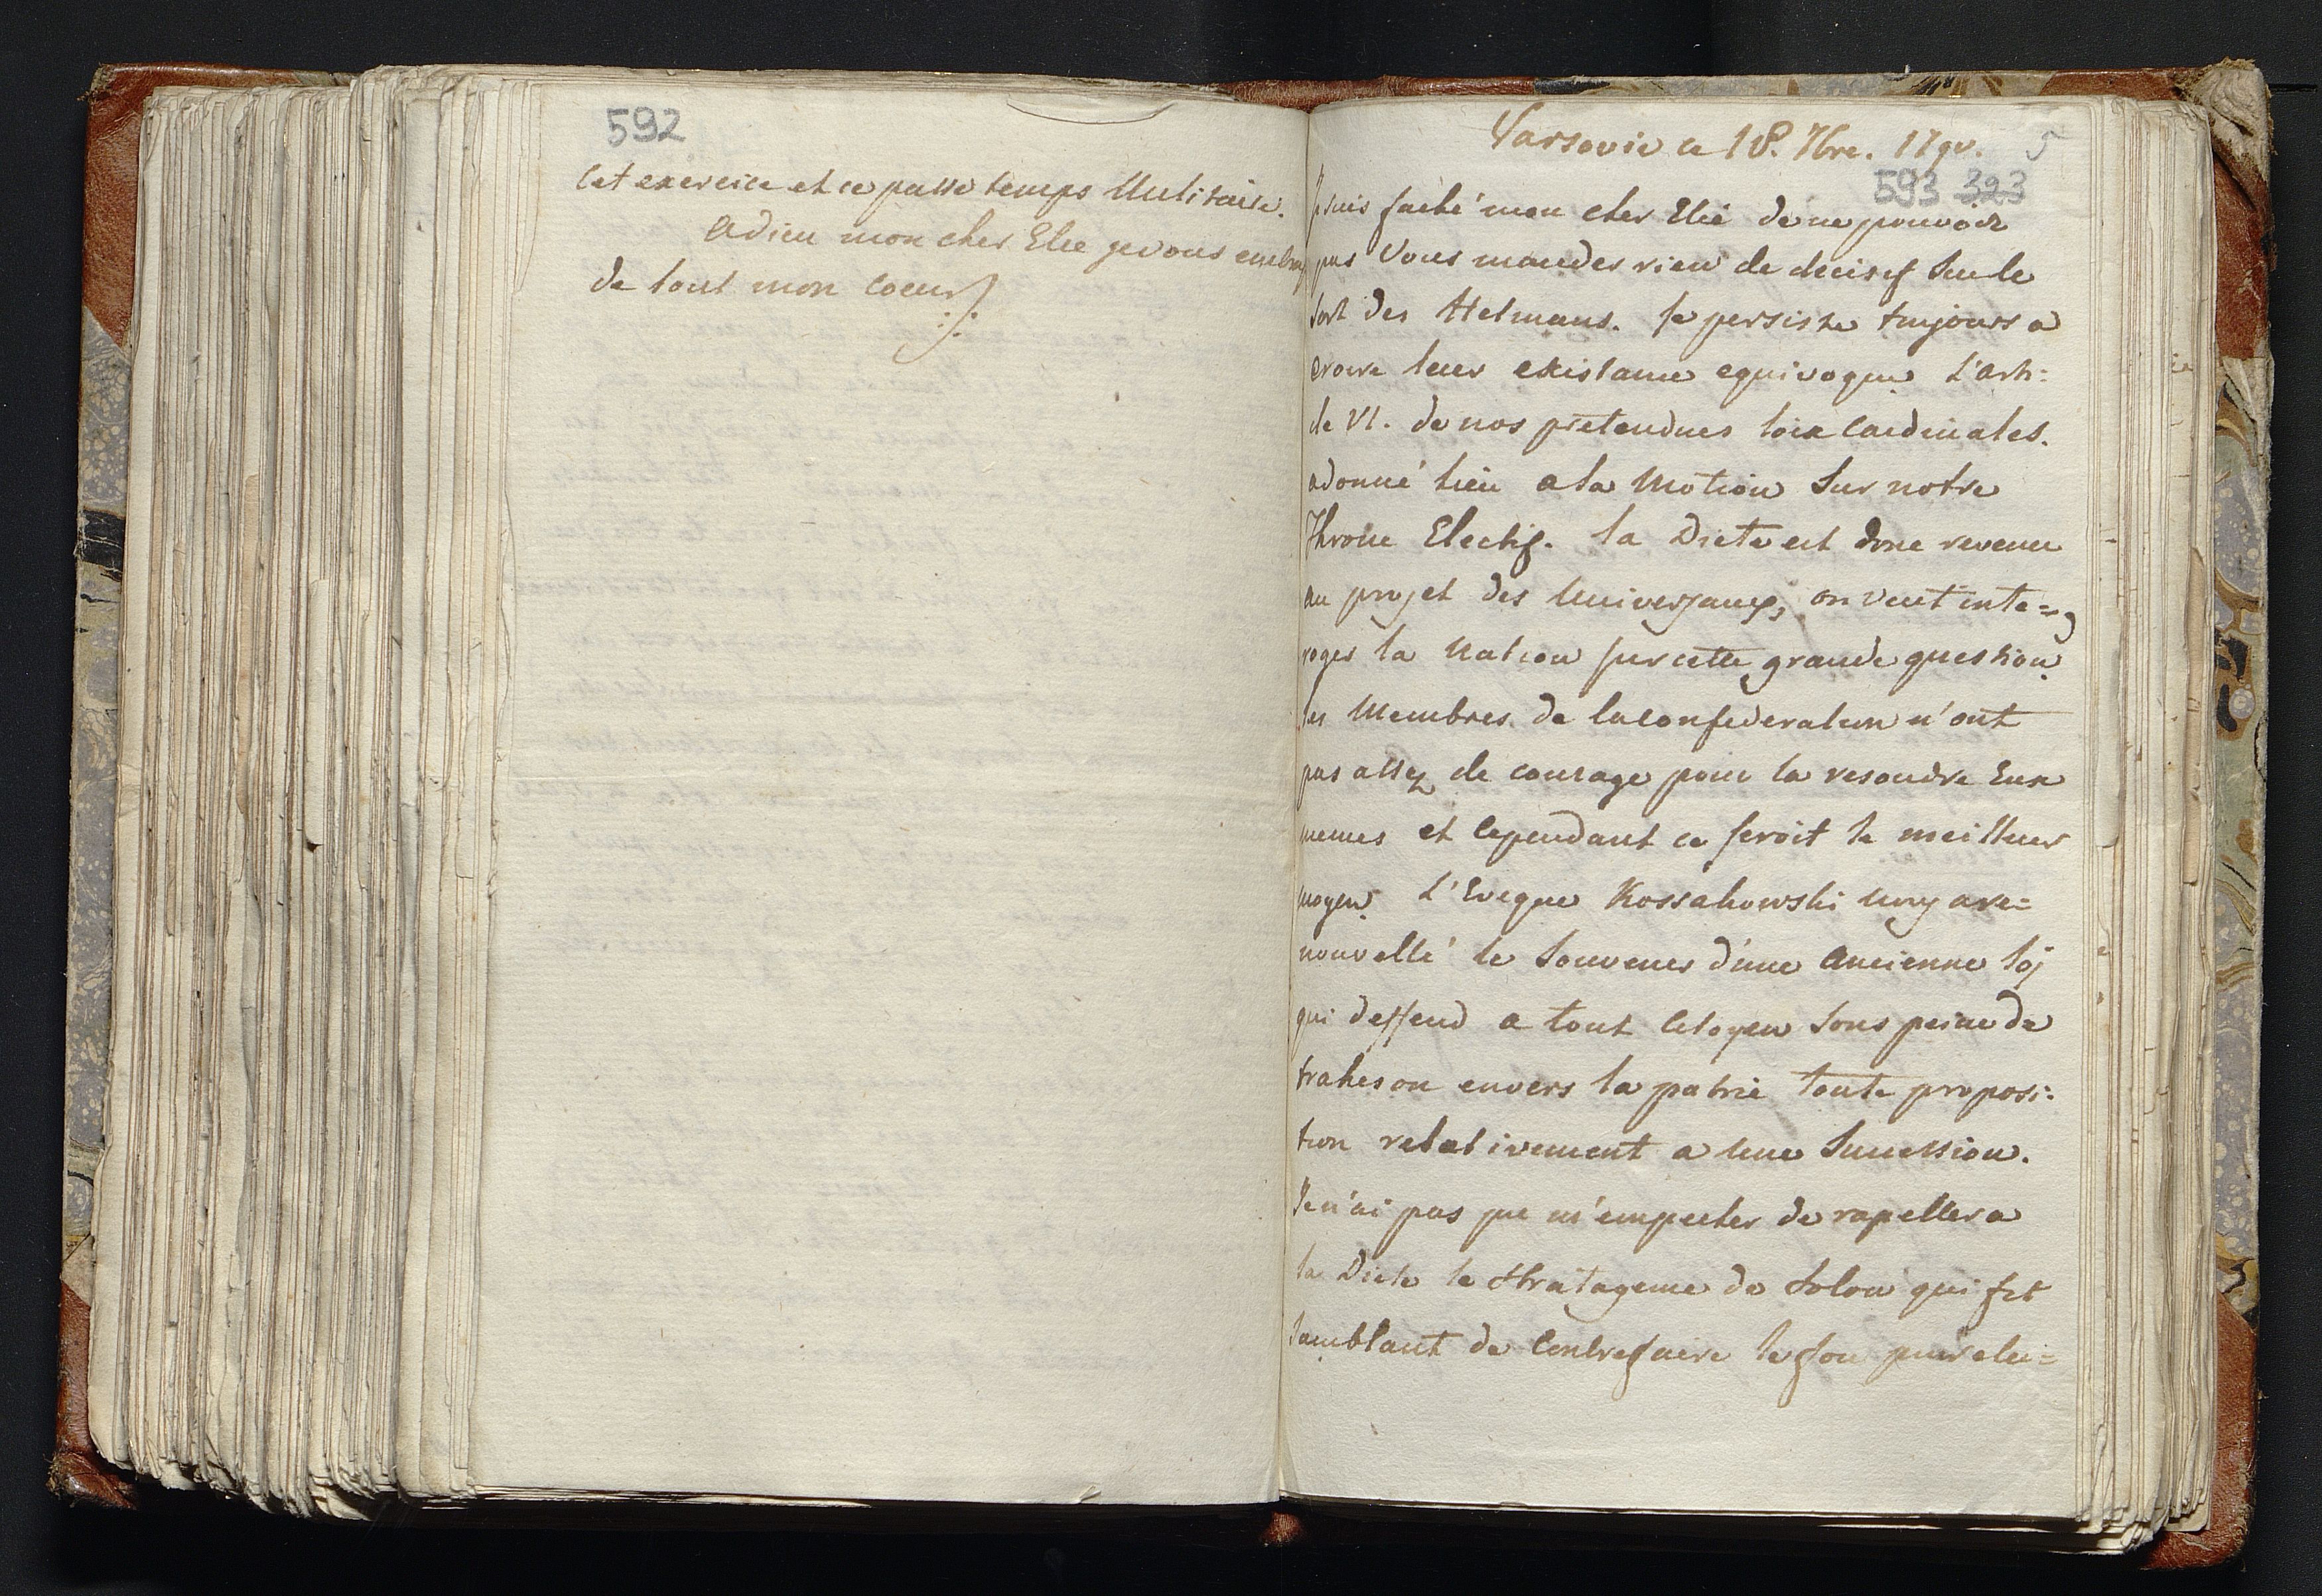 592
Cet exercice et ce passe temps Militaire.
Adieu mon cher Elie je vous embras
de tout mon Coeur
Varsovie ce 18. 7bre. 1790. 5
593 323
Je suis faché mon cher Elie de ne pouvoir
pas Vous mander rien de decisif Sur le
Sort des Hetmans. Je persiste toujours a
croire leur existance equivoque L'arti=
cle VI. de nos pretendues loix Cardinales.
a donné lieu a la Motion Sur notre
Throne Electif. la Diete est donc revenue
au projet des Universaux, on veut inte=
roger la Nation sur cette grande question
les Membres de la Confederation n'ont
pas assez de courage pour la resoudre Eux
memes et Cependant ce seroit le meilleur
moyen. L'Eveque Kossakowski a re=
nouvellé le Souvenir d'une Ancienne loj
qui deffend a tout Citoyen Sous peine de
trahison envers la patrie toute proposi=
tion relativement a une Succession.
Je n'ai pas pu m'empecher de rapeller a
la Diete le Stratageme de Solon qui fit
Samblant de Contrefaire le fou pour elu=